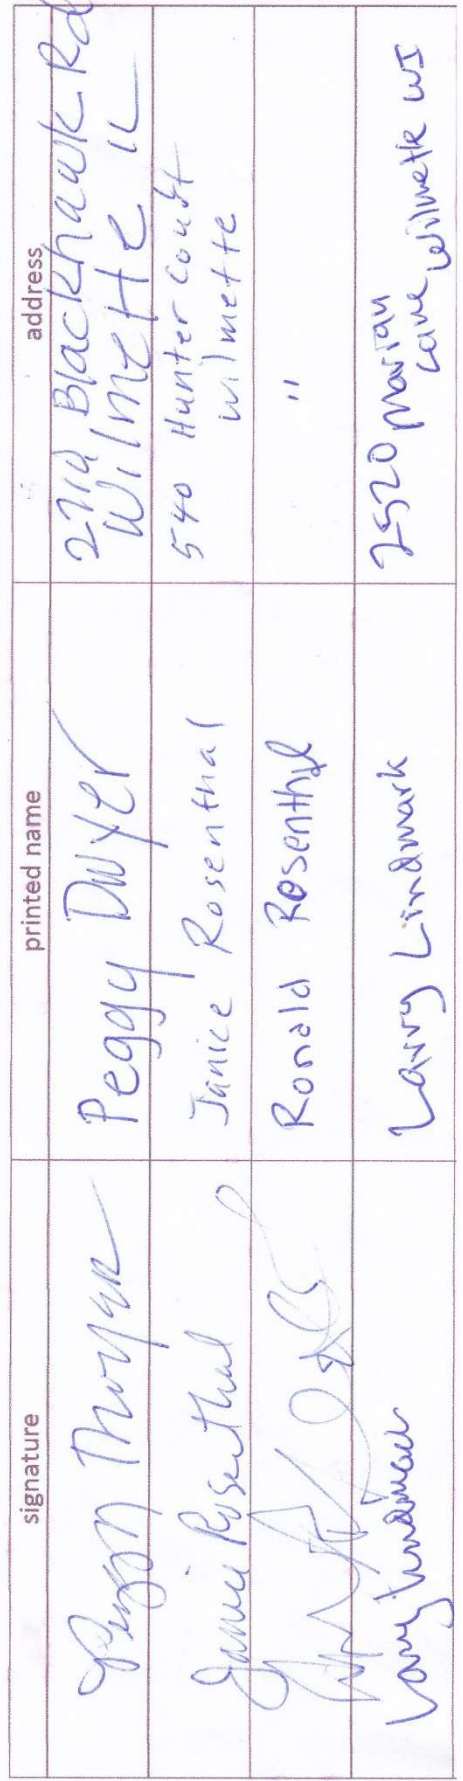 signature printed name address
Peggy Dwyer 2710 Blackhawk Rd
Wilmette IL
Janice Rosenthal Janice Rosenthal 540 Hunter Court
Wilmette
Ronald Rosenthal "
Larry Lindmark Larry Lindmark 2520 Marian
Lane Wilmette WI